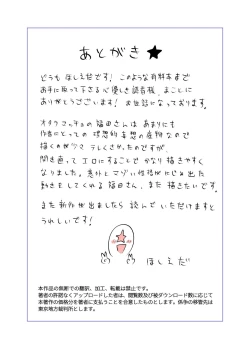 あとがき★
どうも ほしえだです! このような有料本まで
お手に取って下さる心優しき読者様、まことに
ありがとうございます! お世話になっております。
オタクマッチョの福田さんは あまりにも
作者にとっての 理想的妄想の産物なので
描くのが テレくさかったのですが、
開き直って エロにすることで かなり描きやすく
なりました。意外と マゾい性格が にじみ出た
動きをしてくれる 福田さん、また描きたいです。
また 新作が出ましたら 読んで いただけますと
うれしいです!
ほしえだ
本作品の無断での翻訳、加工、転載は禁止です。
著者の許諾なくアップロードした者は、閲覧数及び総ダウンロード数に応じて
本著作の価格分を著者に支払うことを合意したものとします。係争の移管先は
東京地方裁判所とします。